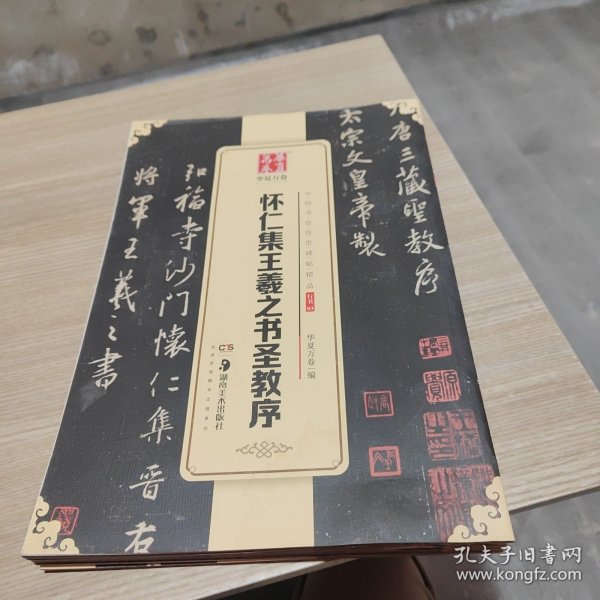 大唐三藏聖教序
太宗文皇帝製
弘福寺沙门懷仁集晋右
将軍王羲之書
華夏萬卷
华夏万卷
中国书法传世碑帖精品
行书03
怀仁集王羲之书圣教序
华夏万卷 编
CS
湖南美术出版社
孔夫子旧书网
www.kongfz.com